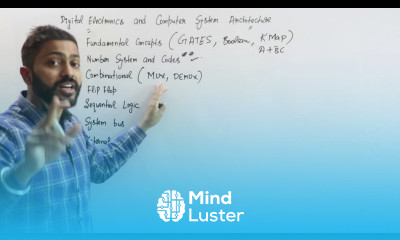 Digital Electronics and Computer System Architecture
Fundamental Concepts (GATES, Boolean, K'Map)
A+BC
Number System and Codes
Combinational (MUX, DEMUX)
Flip Flop
Sequential Logic
System bus
Mind
Luster